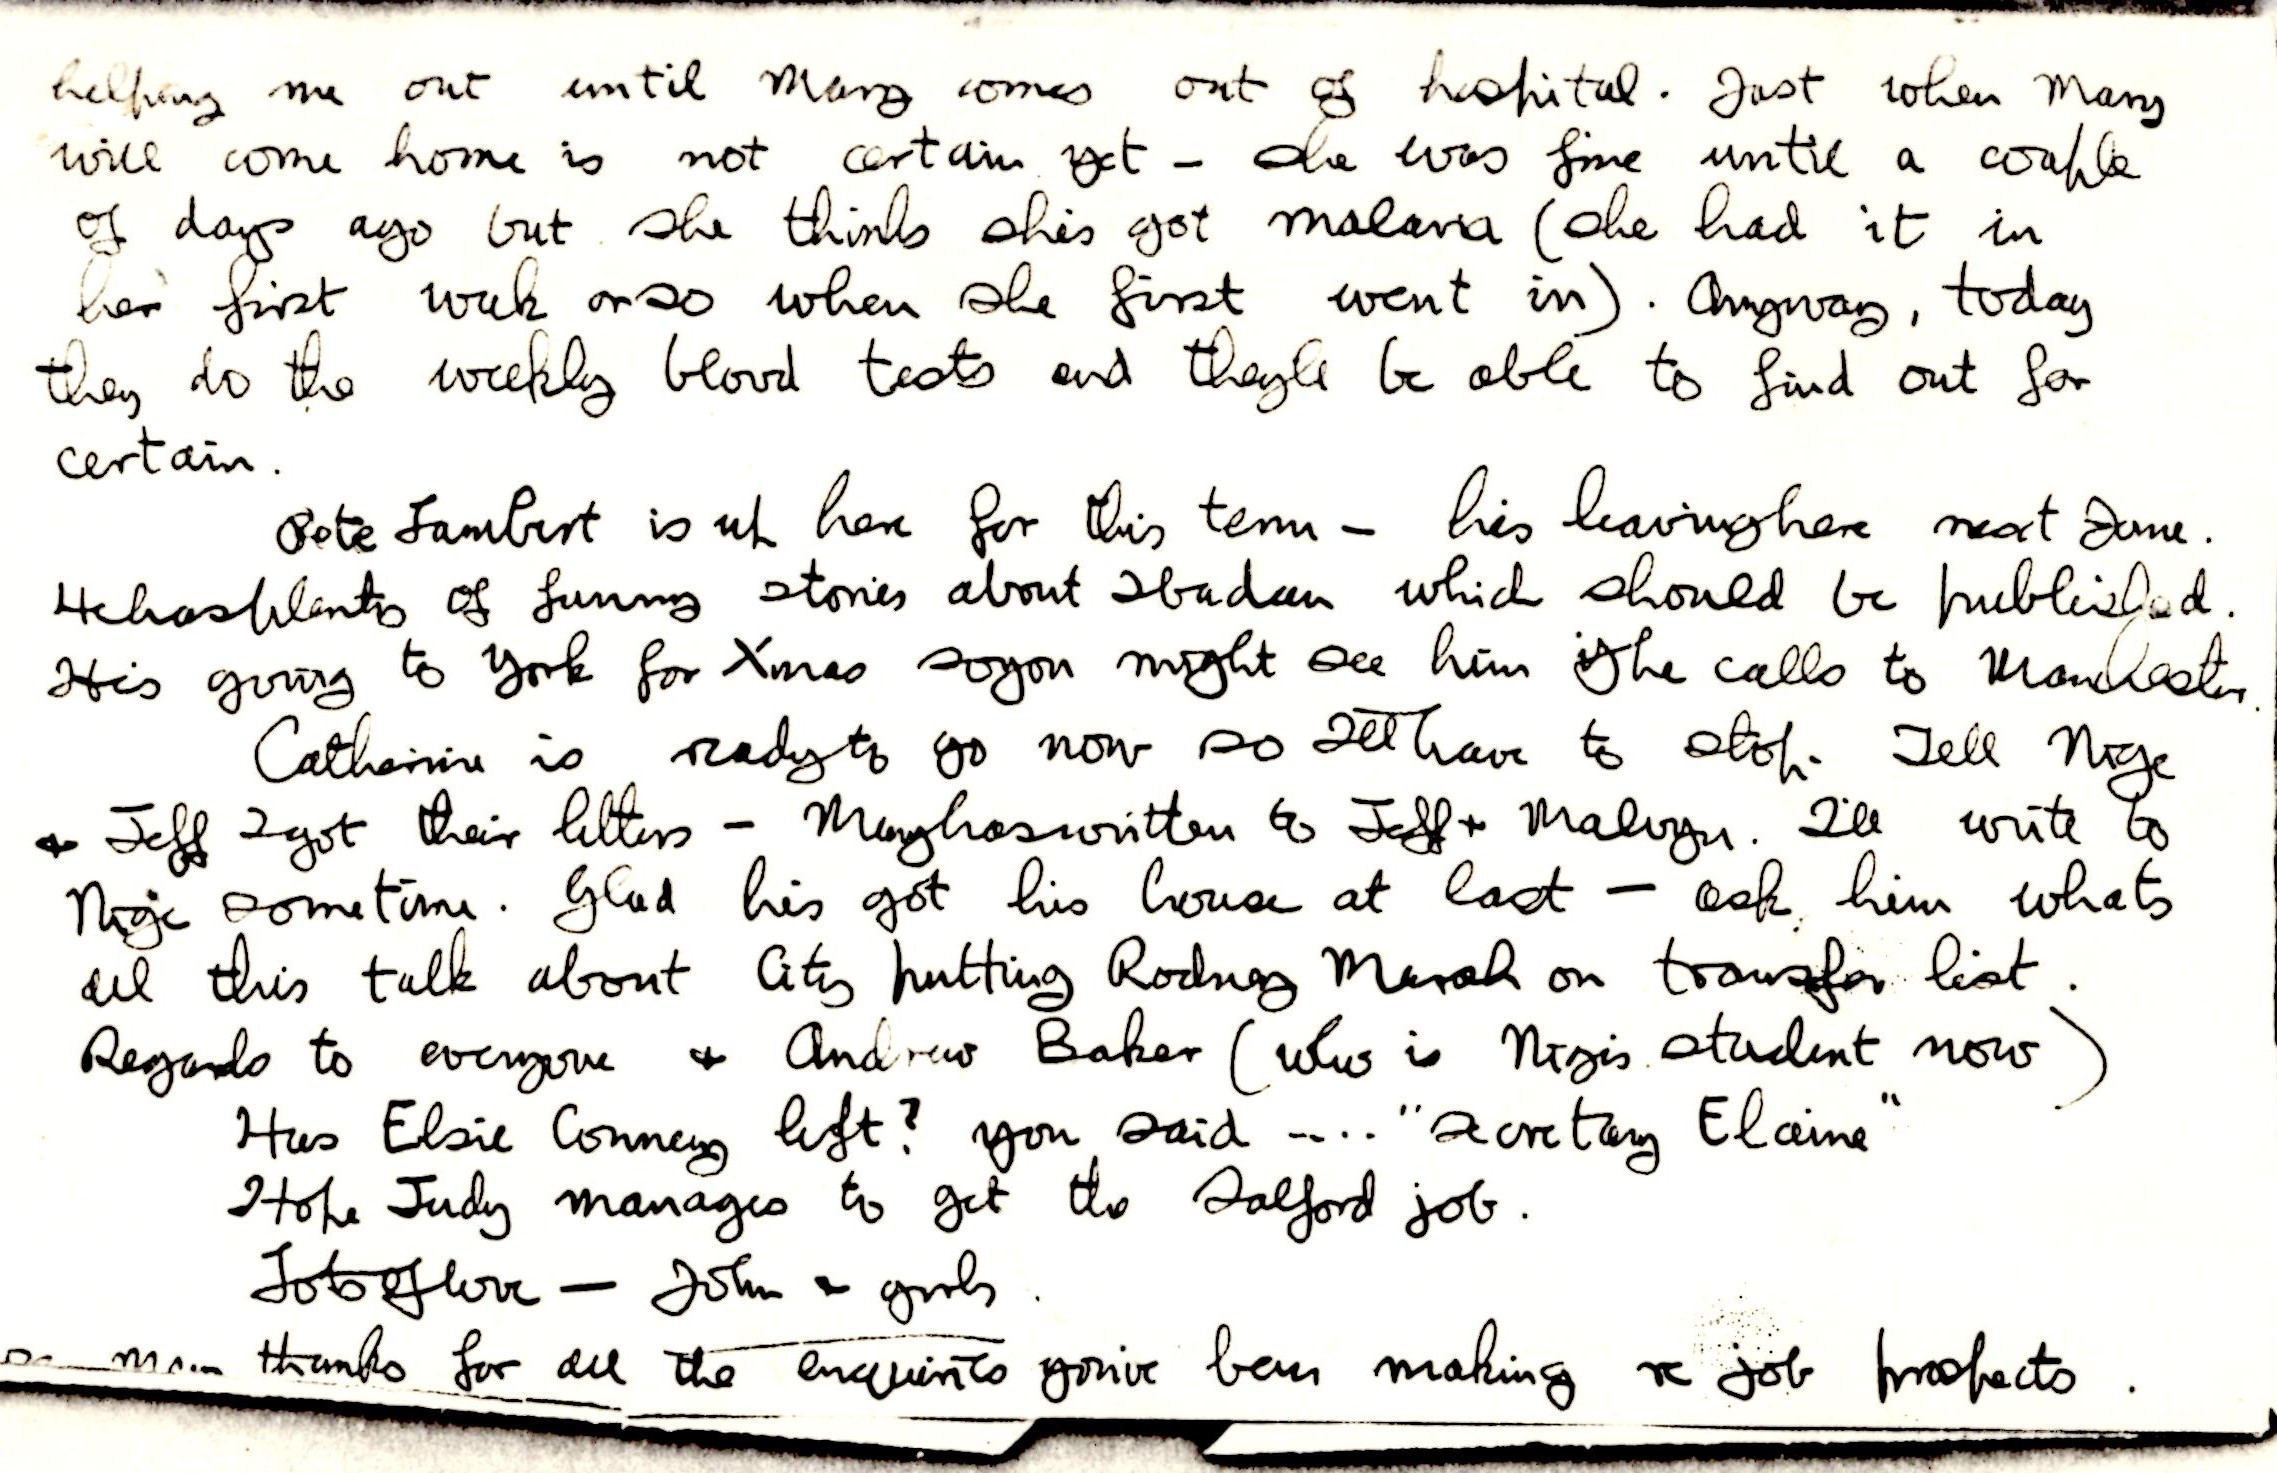 helping me out until Mary comes out of hospital. Just when Mary
will come home is not certain yet - she was fine until a couple
of days ago but she thinks she's got malaria (she had it in
her first week or so when she first went in). Anyway, today
they do the weekly blood tests and they'll be able to find out for
certain.
Pete Lambert is up here for this term - he's leaving here next June.
He has plenty of funny stories about Ibadan which should be published.
He's going to York for Xmas so you might see him if he calls to Manchester.
Catherine is ready to go now so I'll have to stop. Tell Nige
+ Jeff I got their letters - Mary has written to Jeff + Malvyn. I'll write to
Nige sometime. Glad he's got his house at last - ask him whats
all this talk about City putting Rodney Marsh on transfer list.
Regards to everyone + Andrew Baker (who is Nige's student now)
Has Elsie Conney left? you said .... "secretary Elaine"
Hope Judy manages to get the Salford job.
Lots of love - John + girls.
thanks for all the enquiries you've been making re job prospects.